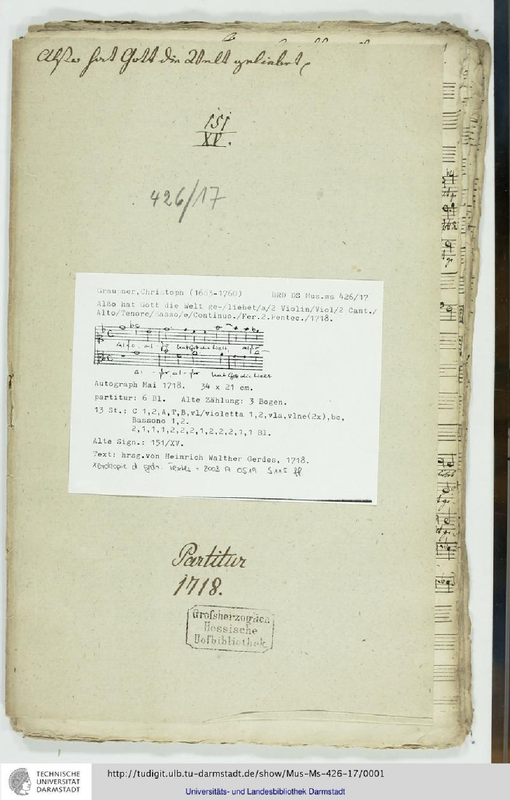 Also hat Gott die Welt geliebet
151
XV.
426/17
Graupner, Christoph (1683-1760) BRD DS Mus.ms 426/17
Alßo hat Gott die Welt ge-/liebet/a/2 Violin/Viol/2 Cant./
Alto/Tenore/Basso/e/Continuo./Fer.2.Pentec./1718.
Autograph Mai 1718. 34 x 21 cm.
partitur: 6 Bl. Alte Zählung: 3 Bogen.
13 St.: C 1,2,A,T,B,vl/violetta 1,2,vla,vlne(2x),bc,
Bassono 1,2.
2,1,1,1,2,2,2,1,2,2,2,1,1 Bl.
Alte Sign.: 151/XV.
Text: hrsg.von Heinrich Walther Gerdes, 1718.
Partitur
1718.
Großherzoglich
Hessische
Hofbibliothek
TECHNISCHE
UNIVERSITÄT
DARMSTADT
http://tudigit.ulb.tu-darmstadt.de/show/Mus-Ms-426-17/0001
Universitäts- und Landesbibliothek Darmstadt